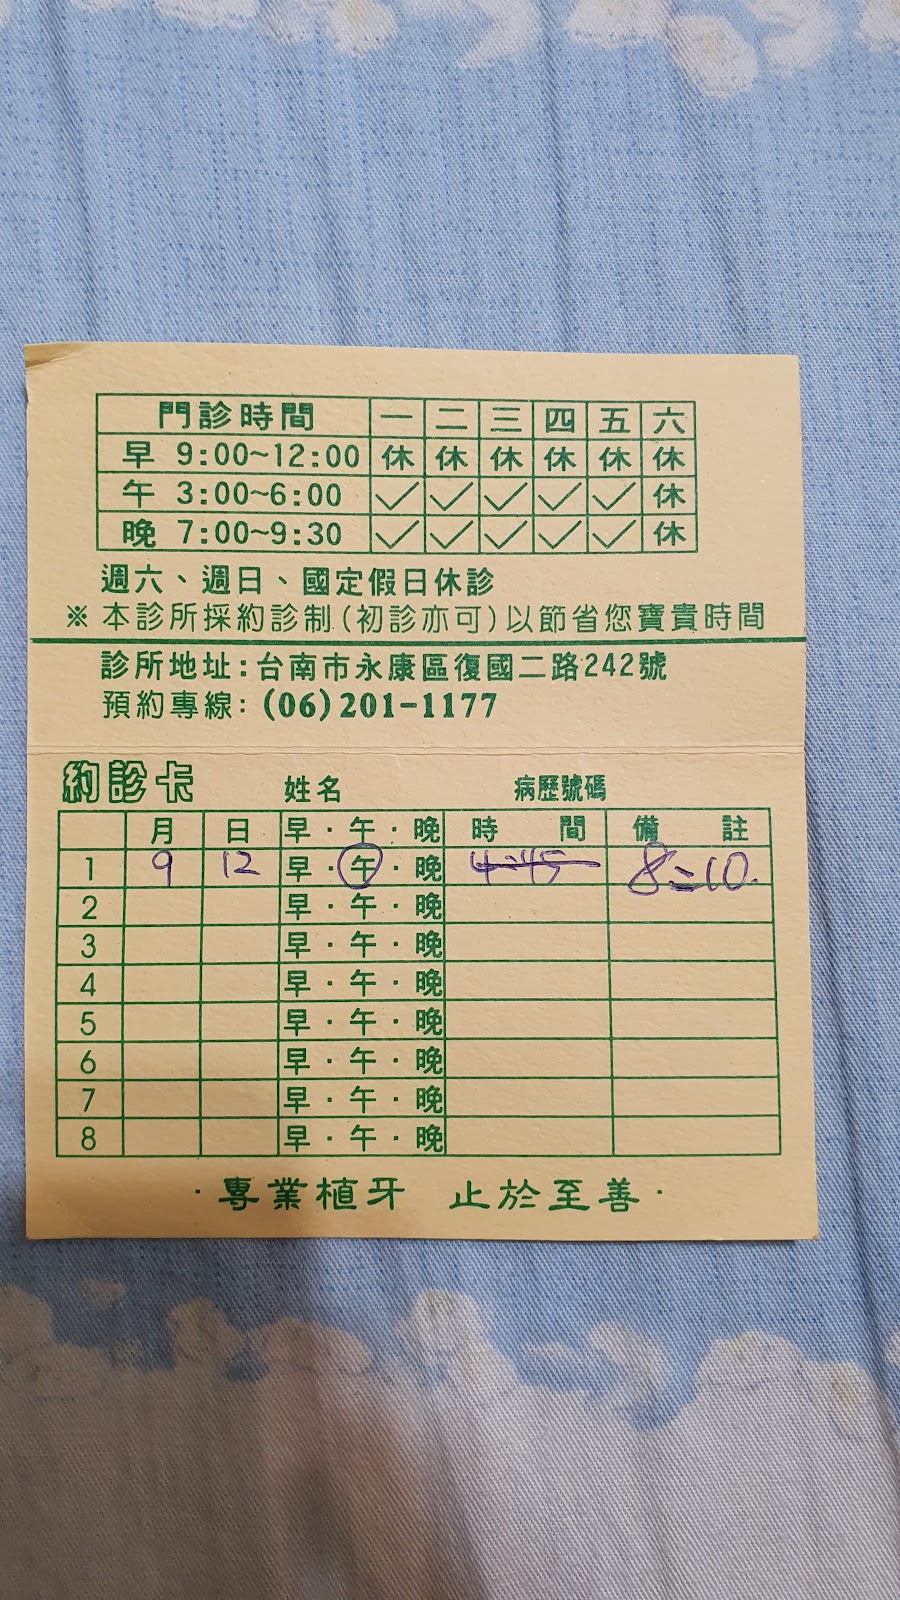 門診時間 一 二 三 四 五 六
早 9:00~12:00 休 休 休 休 休 休
午 3:00~6:00 ✓ ✓ ✓ ✓ ✓ 休
晚 7:00~9:30 ✓ ✓ ✓ ✓ ✓ 休
週六、週日、國定假日休診
※ 本診所採約診制(初診亦可)以節省您寶貴時間
診所地址:台南市永康區復國二路242號
預約專線:(06)201-1177
約診卡 姓名 病歷號碼
月 日 早·午·晚 時間 備註
1 9 12 早·午·晚 4:45 8:10.
2 早·午·晚
3 早·午·晚
4 早·午·晚
5 早·午·晚
6 早·午·晚
7 早·午·晚
8 早·午·晚
·專業植牙 止於至善·